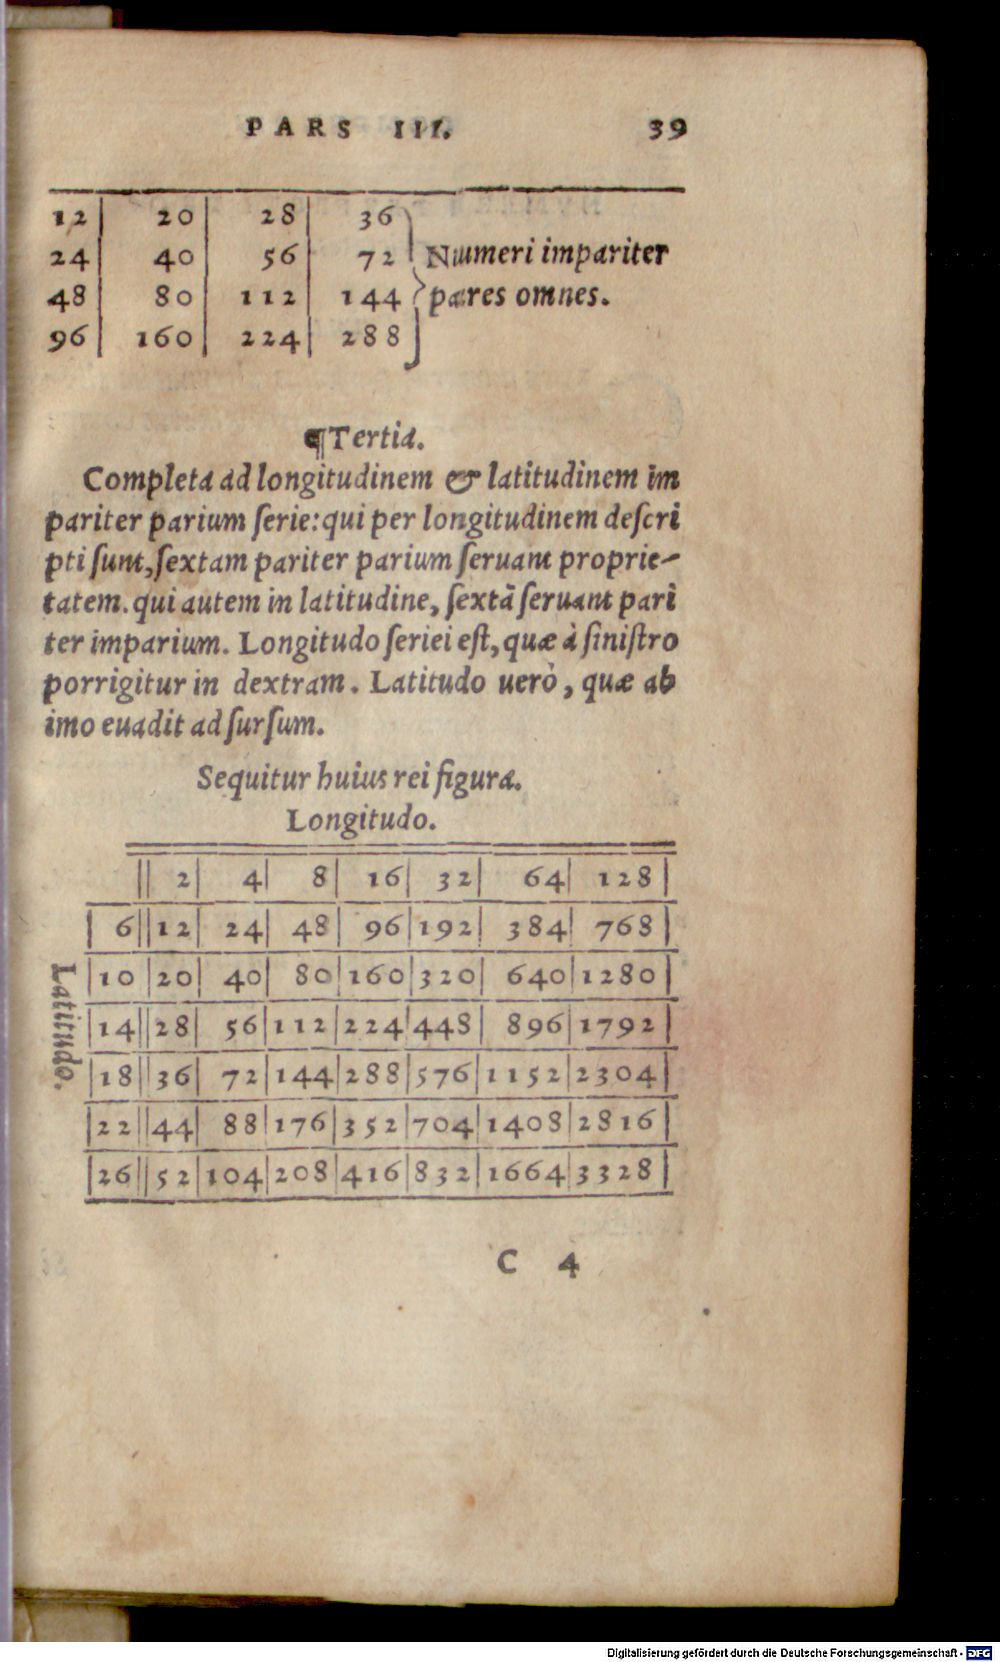 PARS III. 39
12 | 20 | 28 | 36
24 | 40 | 56 | 72 Numeri impariter
48 | 80 | 112 | 144 pares omnes.
96 | 160 | 224 | 288
¶Tertia.
Completa ad longitudinem & latitudinem im
pariter parium ſerie: qui per longitudinem deſcri
pti ſunt, ſextam pariter parium ſeruant proprie-
tatem. qui autem in latitudine, ſextā ſeruant pari
ter imparium. Longitudo ſeriei eſt, quæ à ſiniſtro
porrigitur in dextram. Latitudo uerò, quæ ab
imo euadit ad ſurſum.
Sequitur huius rei figura.
Longitudo.
|| 2 | 4 | 8 | 16 | 32 | 64 | 128 |
| 6 || 12 | 24 | 48 | 96 | 192 | 384 | 768 |
| 10 | 20 | 40 | 80 | 160 | 320 | 640 | 1280 |
| 14 || 28 | 56 | 112 | 224 | 448 | 896 | 1792 |
| 18 || 36 | 72 | 144 | 288 | 576 | 1152 | 2304 |
| 22 || 44 | 88 | 176 | 352 | 704 | 1408 | 2816 |
| 26 || 52 | 104 | 208 | 416 | 832 | 1664 | 3328 |
Latitudo.
C 4
Digitalisierung gefördert durch die Deutsche Forschungsgemeinschaft - DFG